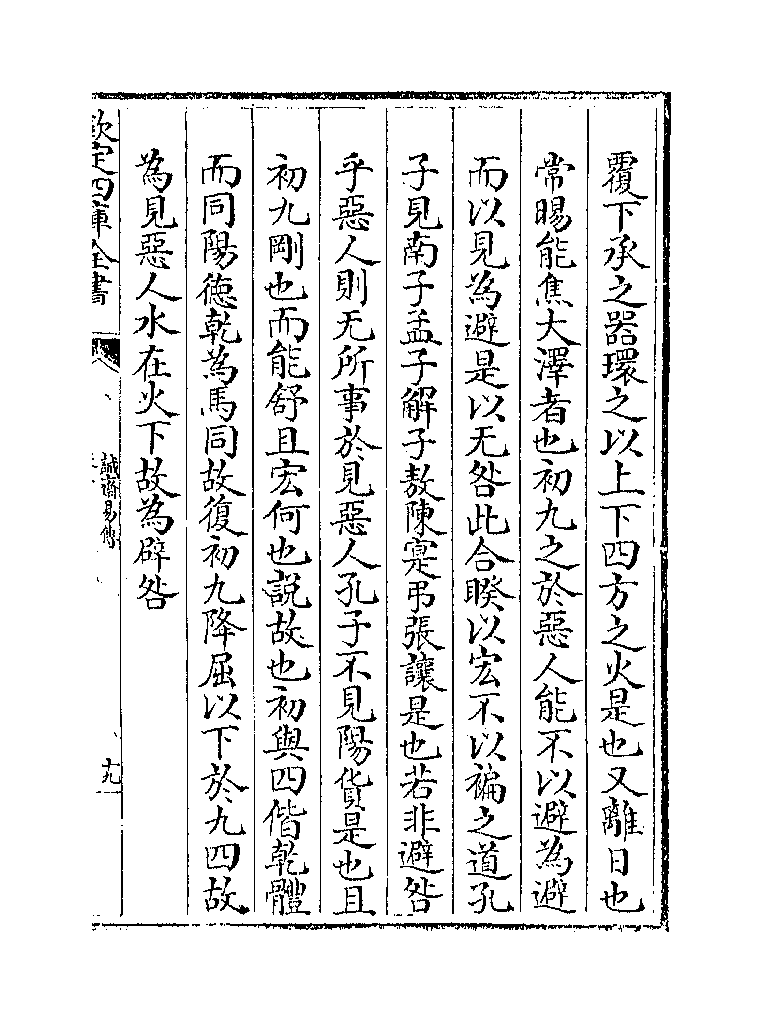 覆下承之器環之以上下四方之火是也又離日也
常暘能焦大澤者也初九之於惡人能不以避為避
而以見為避是以无咎此合睽以宏不以褊之道孔
子見南子孟子解子敖陳寔弔張讓是也若非避咎
乎惡人則无所事於見惡人孔子不見陽貨是也且
初九剛也而能舒且宏何也説故也初與四偕乾體
而同陽徳乾為馬同故復初九降屈以下於九四故
為見惡人水在火下故為辟咎
欽定四庫全書
誠齋易傳
九